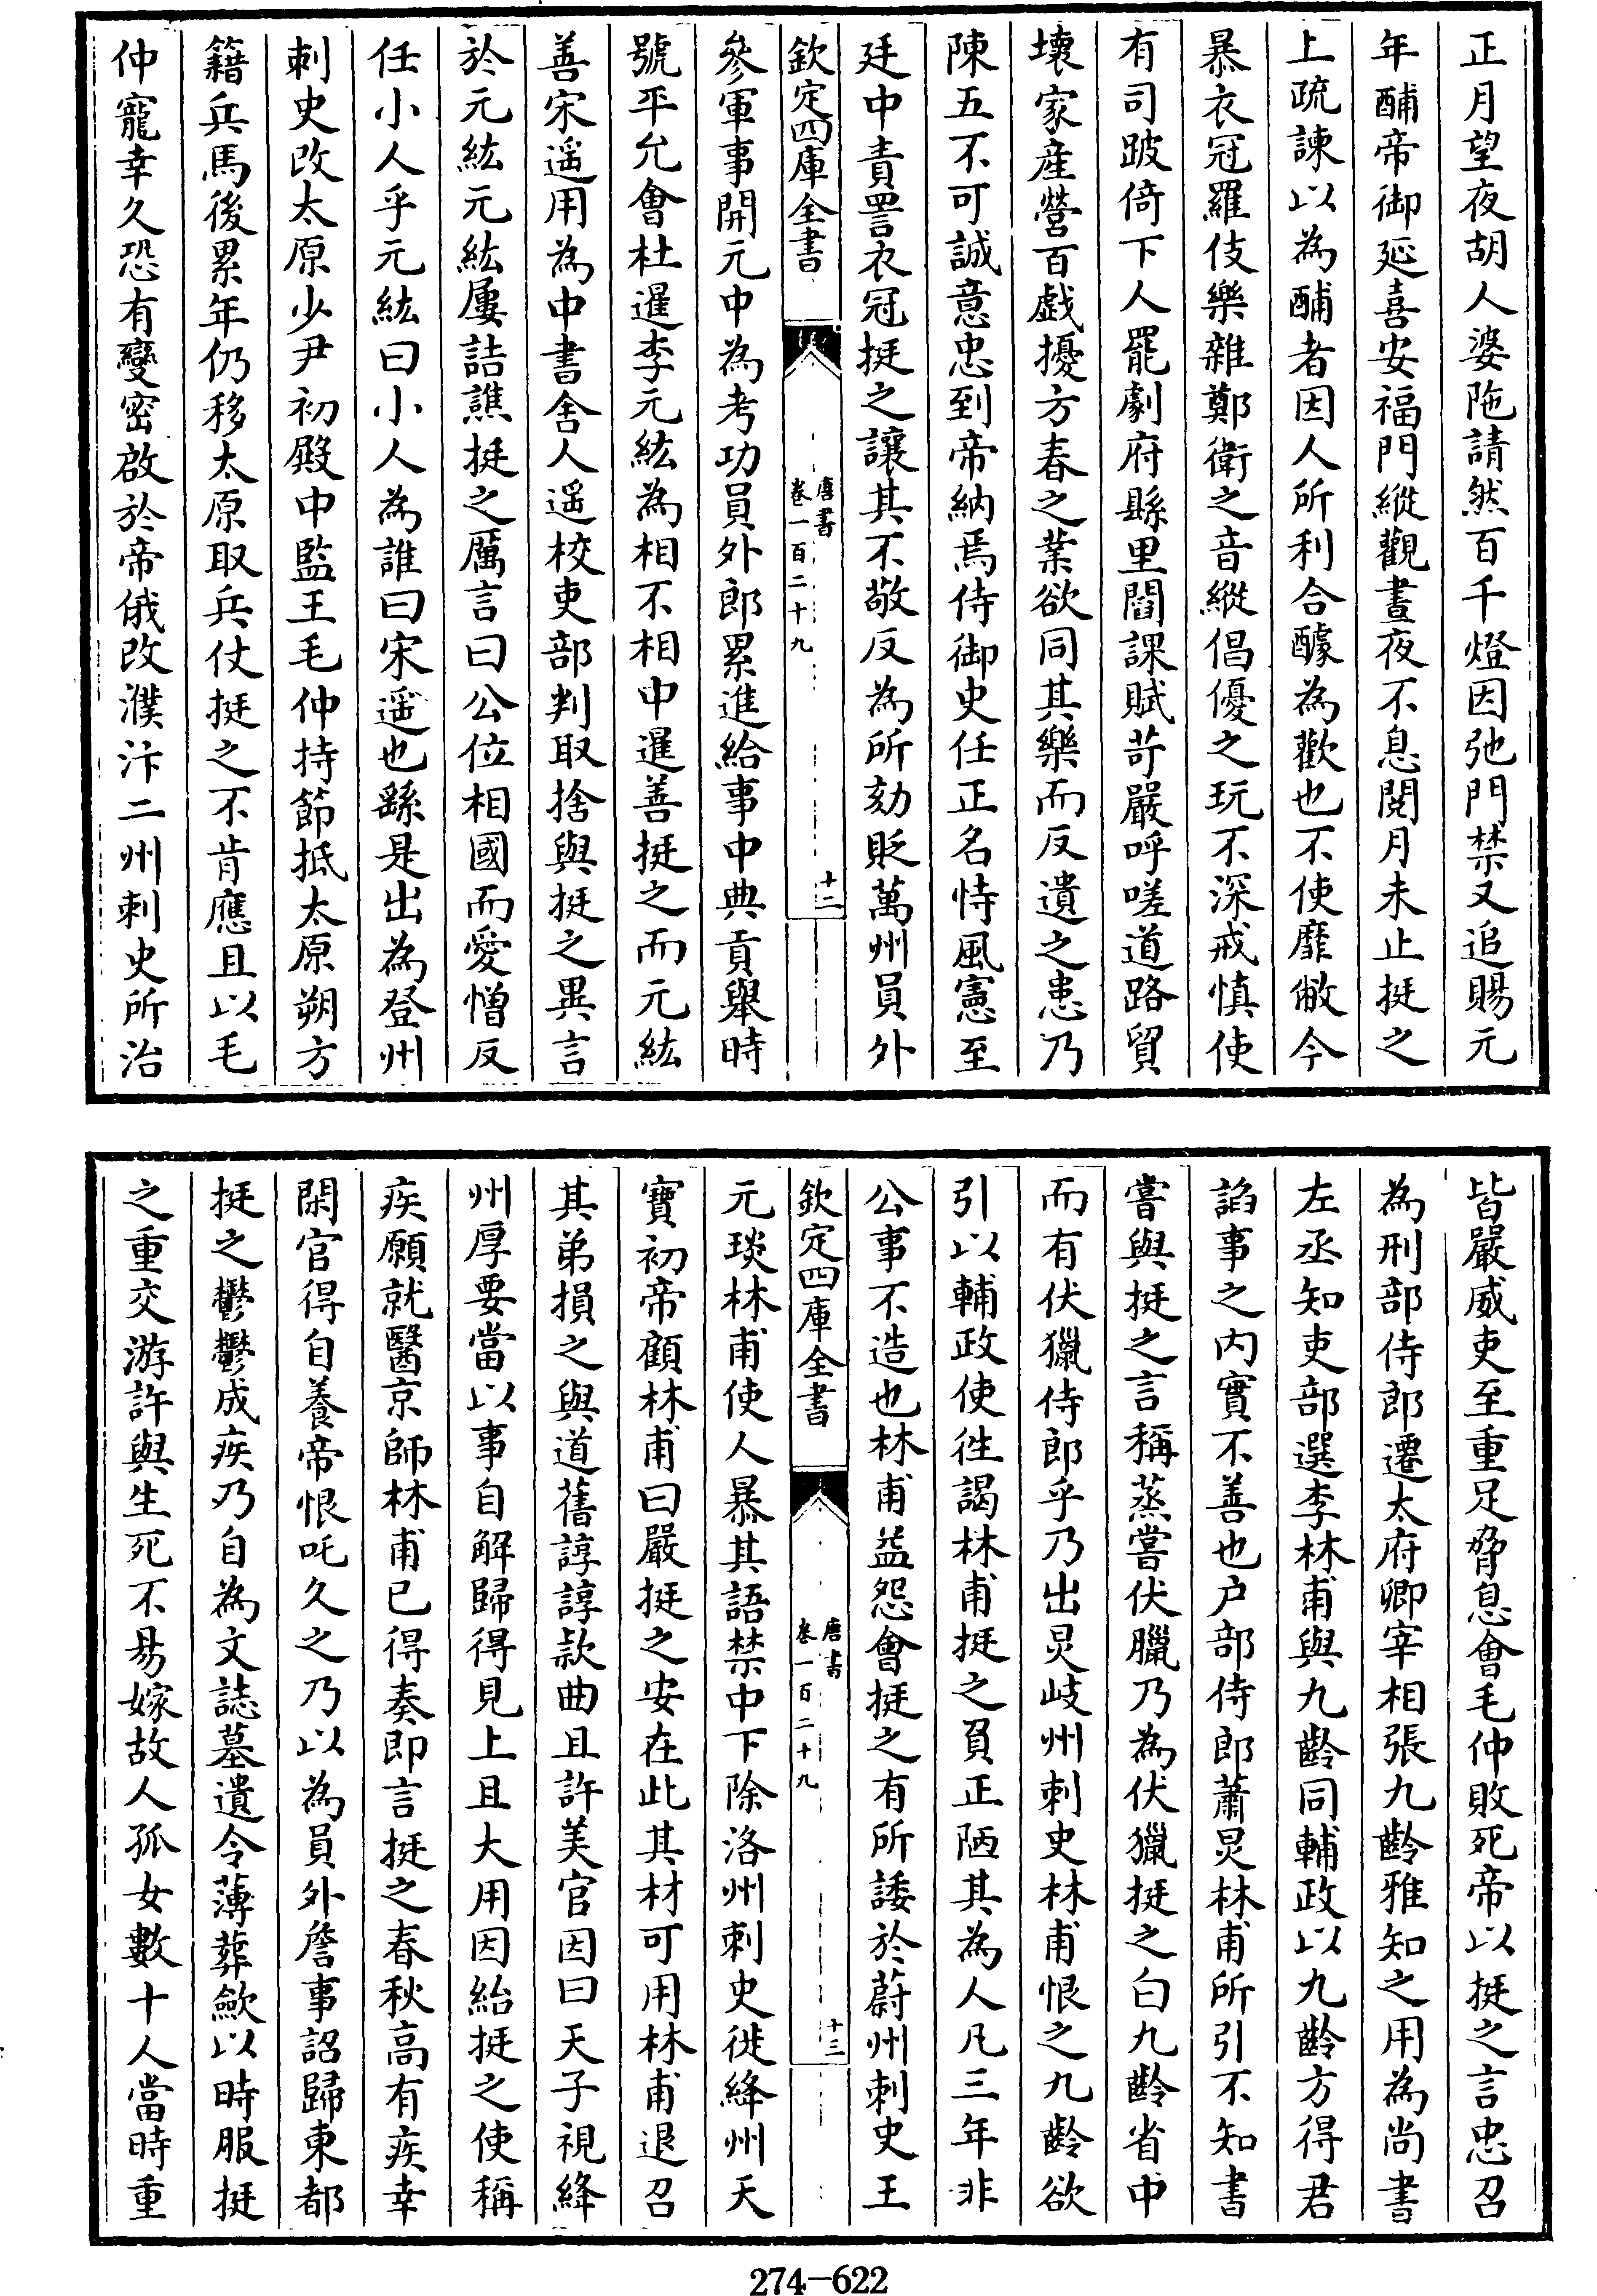 正月望夜胡人婆陁請然百千燈因弛門禁又追賜元
年酺帝御延喜安福門縱觀晝夜不息閱月未止挺之
上疏諫以為酺者因人所利合醵為歡也不使靡敝今
暴衣冠羅伎樂雜鄭衛之音縱倡優之玩不深戒慎使
有司跛倚下人罷劇府縣里閭課賦苛嚴呼嗟道路貿
壞家産營百戲擾方春之業欲同其樂而反遺之患乃
陳五不可誠意忠到帝納焉侍御史任正名恃風憲至
廷中責詈衣冠挺之讓其不敬反為所劾貶萬州員外
欽定四庫全書
唐書
卷一百二十九
十二
參軍事開元中為考功員外郎累進給事中典貢舉時
號平允會杜暹李元紘為相不相中暹善挺之而元紘
善宋遥用為中書舍人遥校吏部判取捨與挺之異言
於元紘元紘屢詰譙挺之厲言曰公位相國而愛憎反
任小人乎元紘曰小人為誰曰宋遥也繇是出為登州
刺史改太原少尹初殿中監王毛仲持節抵太原朔方
籍兵馬後累年仍移太原取兵仗挺之不肯應且以毛
仲寵幸久恐有變密啟於帝俄改濮汴二州刺史所治
皆嚴威吏至重足脅息會毛仲敗死帝以挺之言忠召
為刑部侍郎遷太府卿宰相張九齡雅知之用為尚書
左丞知吏部選李林甫與九齡同輔政以九齡方得君
諂事之内實不善也户部侍郎蕭炅林甫所引不知書
嘗與挺之言稱蒸嘗伏臘乃為伏獵挺之白九齡省中
而有伏獵侍郎乎乃出炅岐州刺史林甫恨之九齡欲
引以輔政使徃謁林甫挺之負正陋其為人凡三年非
公事不造也林甫益怨會挺之有所諉於蔚州刺史王
欽定四庫全書
唐書
卷一百二十九
十三
元琰林甫使人暴其語禁中下除洛州刺史徙絳州天
寶初帝顧林甫曰嚴挺之安在此其材可用林甫退召
其弟損之與道舊諄諄款曲且許美官因曰天子視絳
州厚要當以事自解歸得見上且大用因紿挺之使稱
疾願就醫京師林甫已得奏即言挺之春秋高有疾幸
閑官得自養帝恨吒久之乃以為員外詹事詔歸東都
挺之鬱鬱成疾乃自為文誌墓遺令薄葬歛以時服挺
之重交游許與生死不易嫁故人孤女數十人當時重
274-622